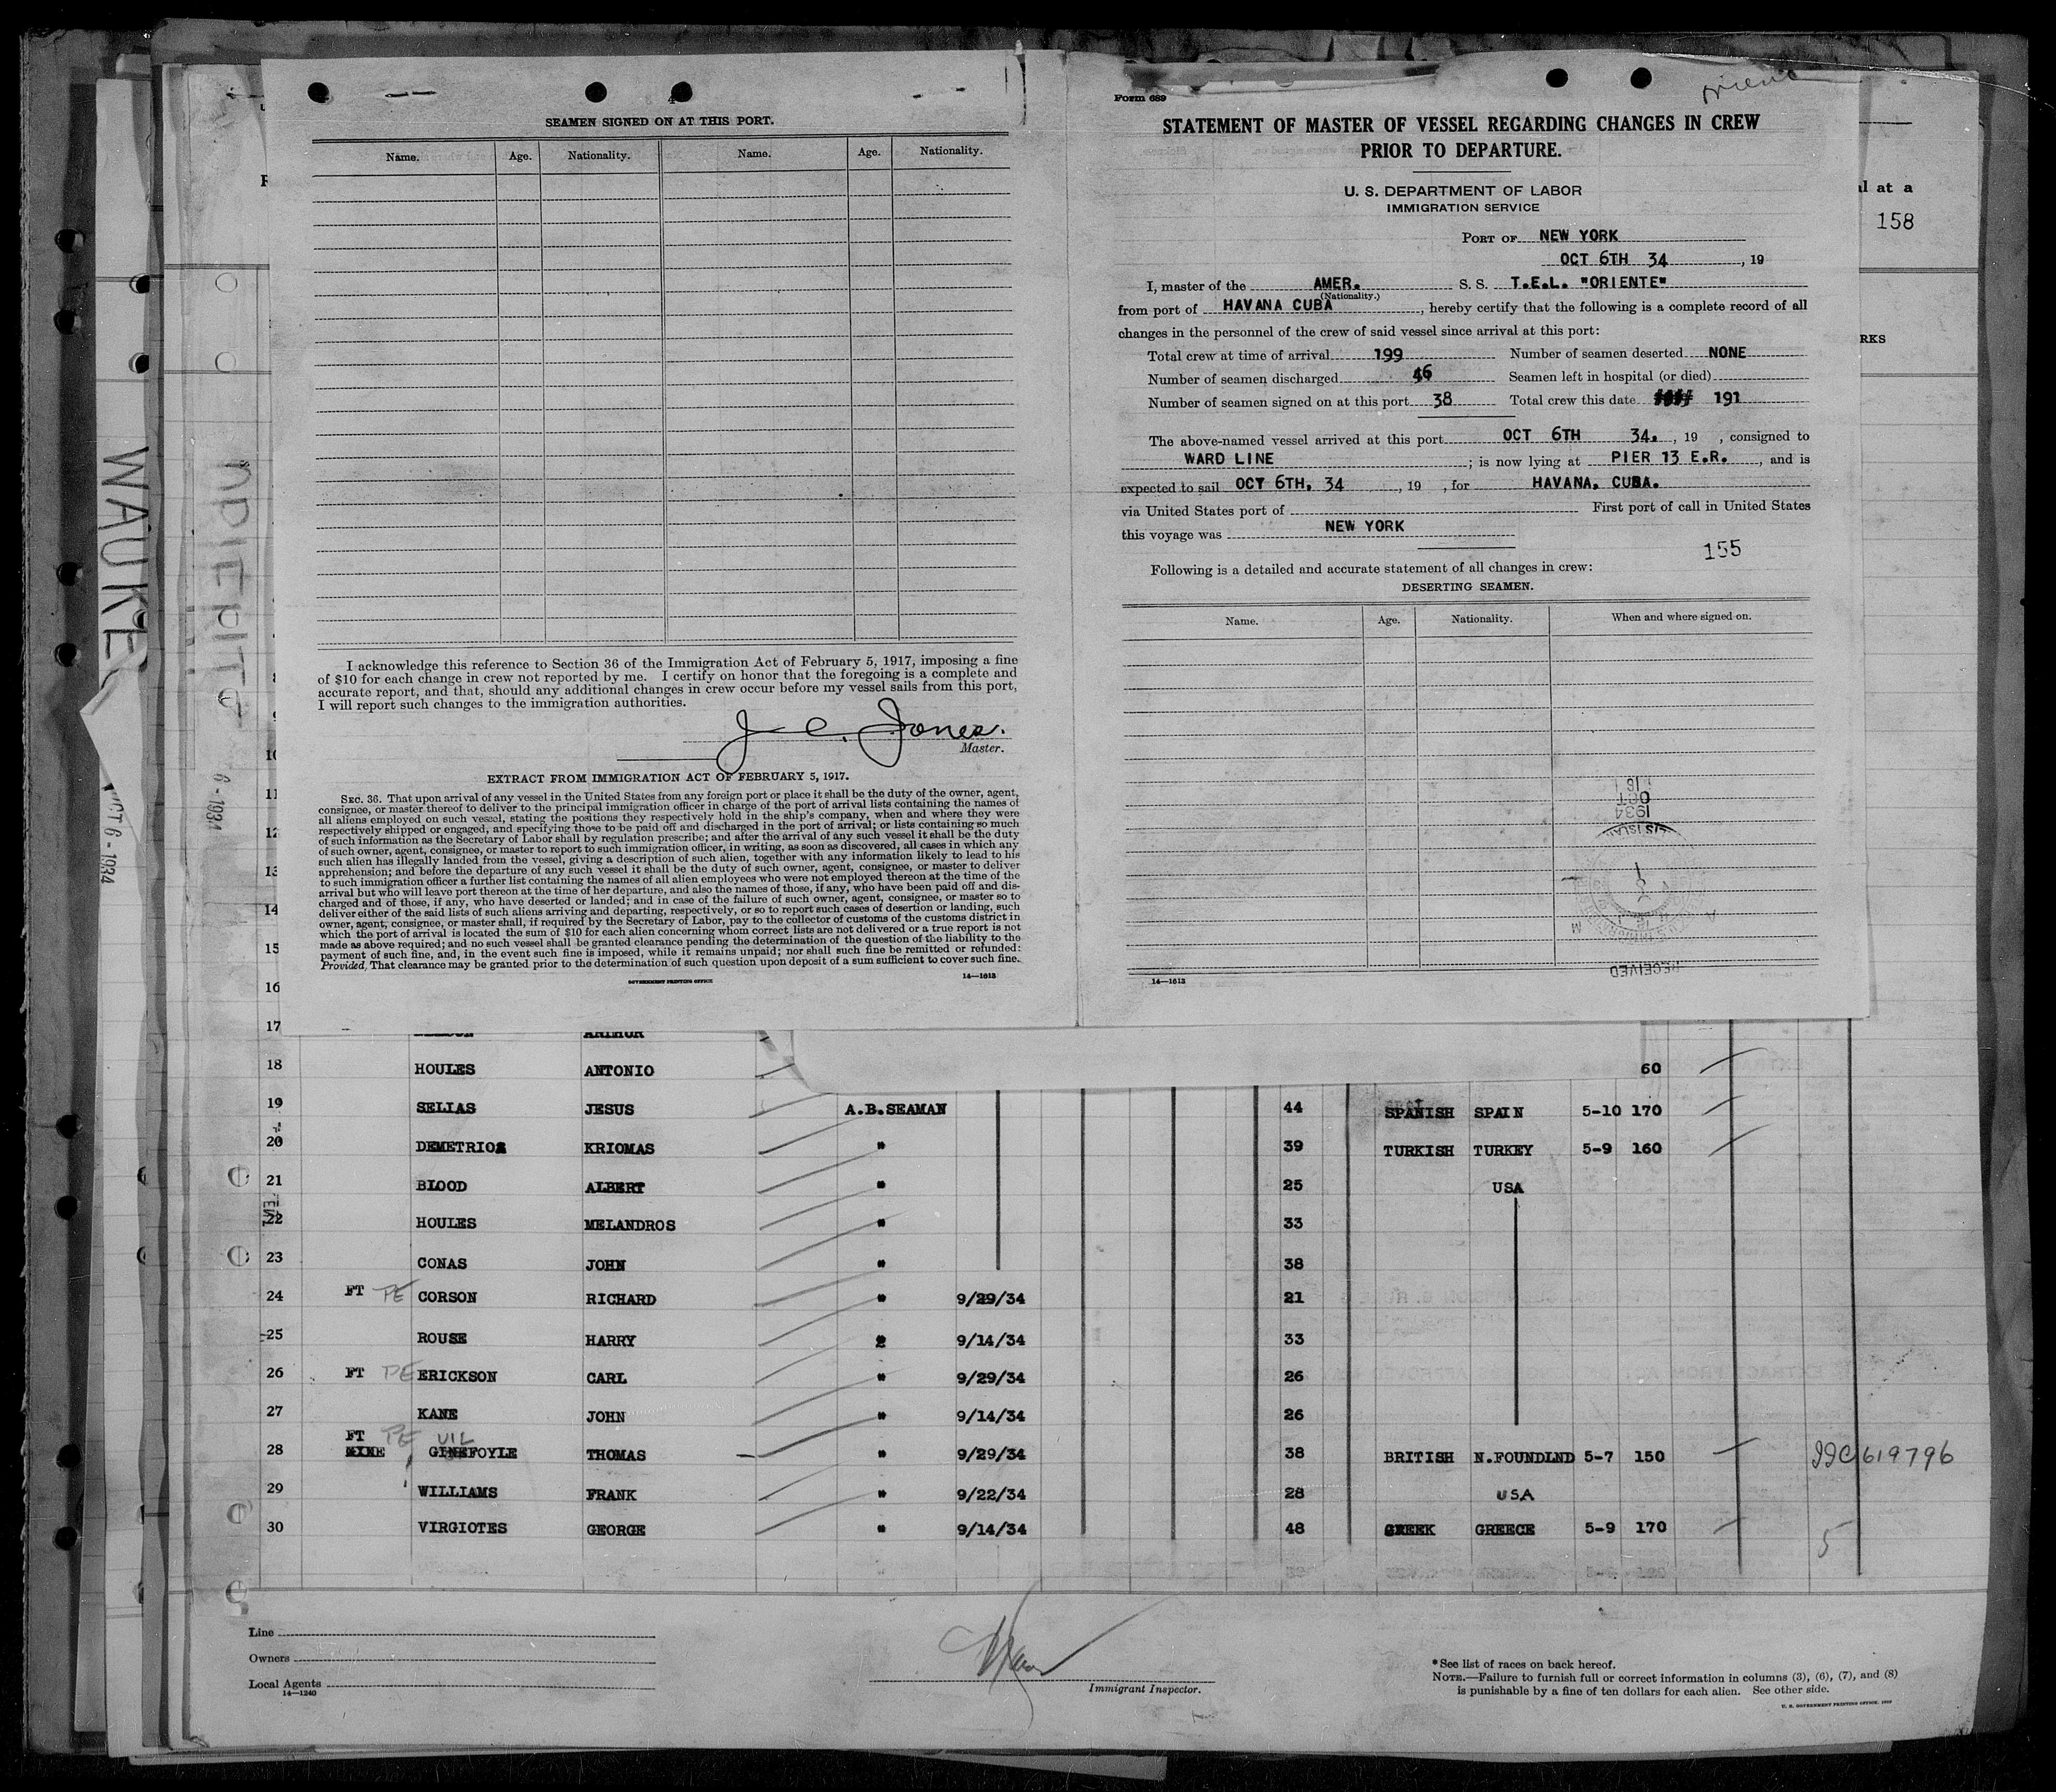 SEAMEN SIGNED ON AT THIS PORT.
Name. Age. Nationality. Name. Age. Nationality.
I acknowledge this reference to Section 36 of the Immigration Act of February 5, 1917, imposing a fine
of $10 for each change in crew not reported by me. I certify on honor that the foregoing is a complete and
accurate report, and that, should any additional changes in crew occur before my vessel sails from this port,
I will report such changes to the immigration authorities.
J. C. Jones.
Master.
EXTRACT FROM IMMIGRATION ACT OF FEBRUARY 5, 1917.
SEC. 36. That upon arrival of any vessel in the United States from any foreign port or place it shall be the duty of the owner, agent,
consignee, or master thereof to deliver to the principal immigration officer in charge of the port of arrival lists containing the names of
all aliens employed on such vessel, stating the positions they respectively hold in the ship's company, when and where they were
respectively shipped or engaged, and specifying those to be paid off and discharged in the port of arrival; or lists containing so much
of such information as the Secretary of Labor shall by regulation prescribe; and after the arrival of any such vessel it shall be the duty
of such owner, agent, consignee, or master to report to such immigration officer, in writing, as soon as discovered, all cases in which any
such alien has illegally landed from the vessel, giving a description of such alien, together with any information likely to lead to his
apprehension; and before the departure of any such vessel it shall be the duty of such owner, agent, consignee, or master to deliver
to such immigration officer a further list containing the names of all alien employees who were not employed thereon at the time of the
arrival but who will leave port thereon at the time of her departure, and also the names of those, if any, who have been paid off and dis-
charged and of those, if any, who have deserted or landed; and in case of the failure of such owner, agent, consignee, or master so to
deliver either of the said lists of such aliens arriving and departing, respectively, or so to report such cases of desertion or landing, such
owner, agent, consignee, or master shall, if required by the Secretary of Labor, pay to the collector of customs of the customs district in
which the port of arrival is located the sum of $10 for each alien concerning whom correct lists are not delivered or a true report is not
made as above required; and no such vessel shall be granted clearance pending the determination of the question of the liability to the
payment of such fine, and, in the event such fine is imposed, while it remains unpaid; nor shall such fine be remitted or refunded:
Provided, That clearance may be granted prior to the determination of such question upon deposit of a sum sufficient to cover such fine.
GOVERNMENT PRINTING OFFICE 14—1613
Form 689
Oriente
STATEMENT OF MASTER OF VESSEL REGARDING CHANGES IN CREW
PRIOR TO DEPARTURE.
U. S. DEPARTMENT OF LABOR
IMMIGRATION SERVICE
PORT OF NEW YORK
OCT 6TH 34, 19
I, master of the AMER. S. S. T.E.L. "ORIENTE"
(Nationality.)
from port of HAVANA CUBA, hereby certify that the following is a complete record of all
changes in the personnel of the crew of said vessel since arrival at this port:
Total crew at time of arrival 199 Number of seamen deserted NONE
Number of seamen discharged 46 Seamen left in hospital (or died)
Number of seamen signed on at this port 38 Total crew this date 191
The above-named vessel arrived at this port OCT 6TH 34., 19 , consigned to
WARD LINE ; is now lying at PIER 13 E.R. , and is
expected to sail OCT 6TH, 34 , 19 , for HAVANA, CUBA.
via United States port of First port of call in United States
this voyage was NEW YORK
155
Following is a detailed and accurate statement of all changes in crew:
DESERTING SEAMEN.
Name. Age. Nationality. When and where signed on.
1934
OCT 16
RECEIVED
14—1613
l at a
158
RKS
WAUKE
OCT 6 - 1934
6 - 1934
10
11
12
13
14
15
16
17 ARTHUR
18 HOULES ANTONIO 60
19 SELIAS JESUS A.B.SEAMAN 44 SPANISH SPAIN 5-10 170
20 DEMETRIOS KRIOMAS " 39 TURKISH TURKEY 5-9 160
21 BLOOD ALBERT " 25 USA
22 HOULES MELANDROS " 33
23 CONAS JOHN " 38
24 FT PE CORSON RICHARD " 9/29/34 21
25 ROUSE HARRY " 9/14/34 33
26 FT PE ERICKSON CARL " 9/29/34 26
27 KANE JOHN " 9/14/34 26
FT PE UIL
28 GINEFOYLE THOMAS " 9/29/34 38 BRITISH N.FOUNDLND 5-7 150 619796
29 WILLIAMS FRANK " 9/22/34 28 USA
30 VIRGIOTES GEORGE " 9/14/34 48 GREEK GREECE 5-9 170 5
Line
Owners
Local Agents
14—1240
Immigrant Inspector.
*See list of races on back hereof.
NOTE.—Failure to furnish full or correct information in columns (3), (6), (7), and (8)
is punishable by a fine of ten dollars for each alien. See other side.
U. S. GOVERNMENT PRINTING OFFICE